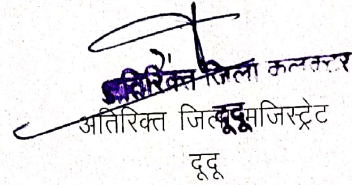 अतिरिक्त जिला कलक्टर
दूदू
अतिरिक्त जिला मजिस्ट्रेट
दूदू